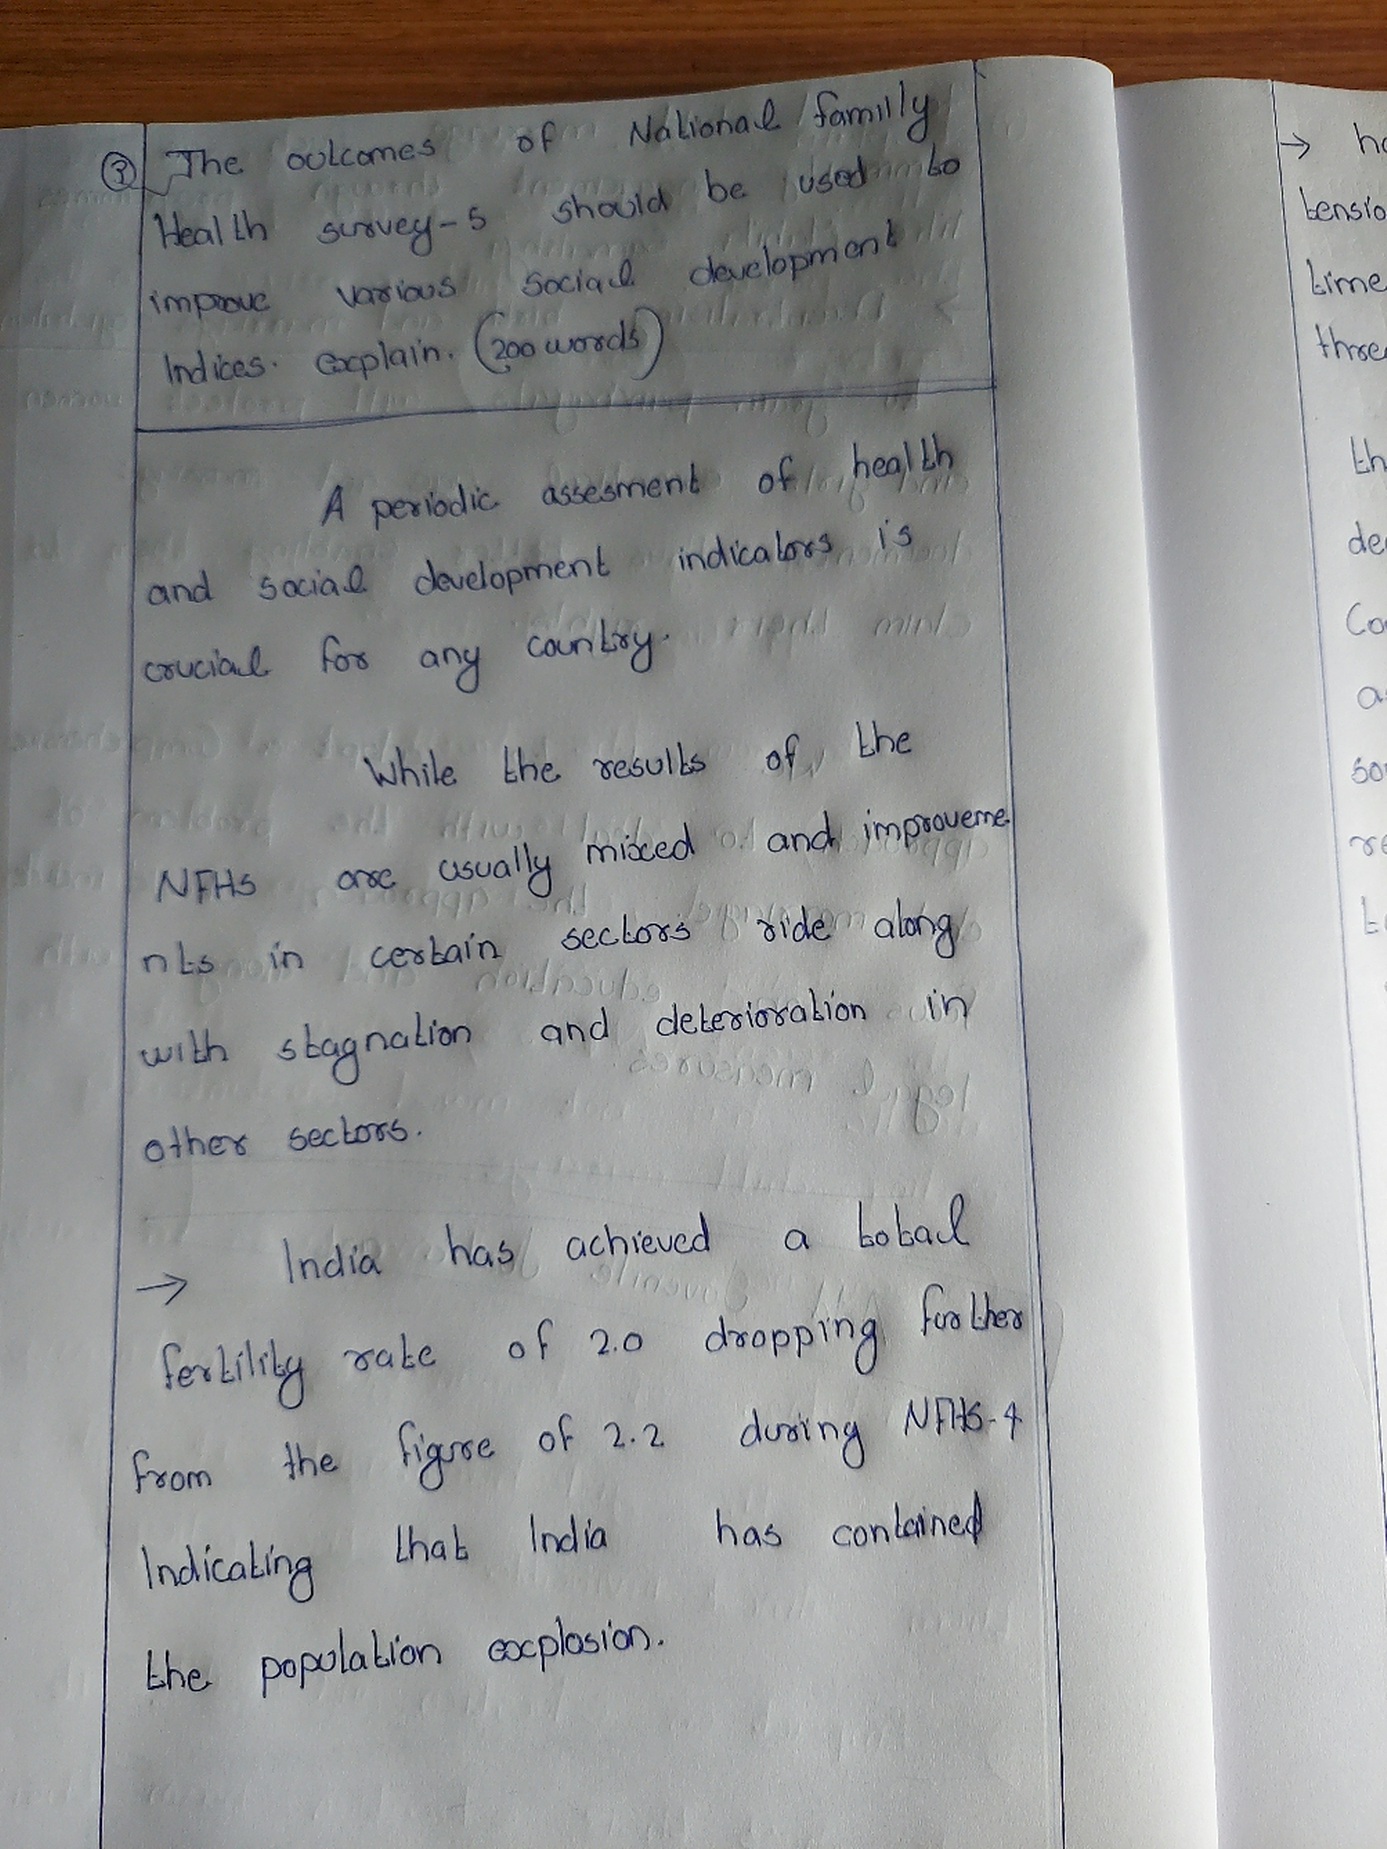 3 The outcomes of National familly
Health survey-5 should be used to
improve various social development
Indices. explain. (200 words)
A periodic assesment of health
and social development indicators is
crucial for any country.
While the results of the
NFHS are usually mixed and improveme
nts in certain sectors ride along
with stagnation and deterioration in
other sectors.
→ India has achieved a total
fertility rate of 2.0 dropping further
from the figure of 2.2 during NFHS-4
Indicating that India has contained
the population explosion.
→
time